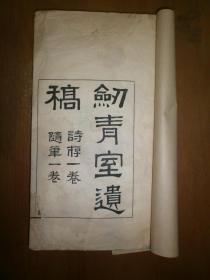 劒青室遺
稿
詩存一卷
隨筆一卷